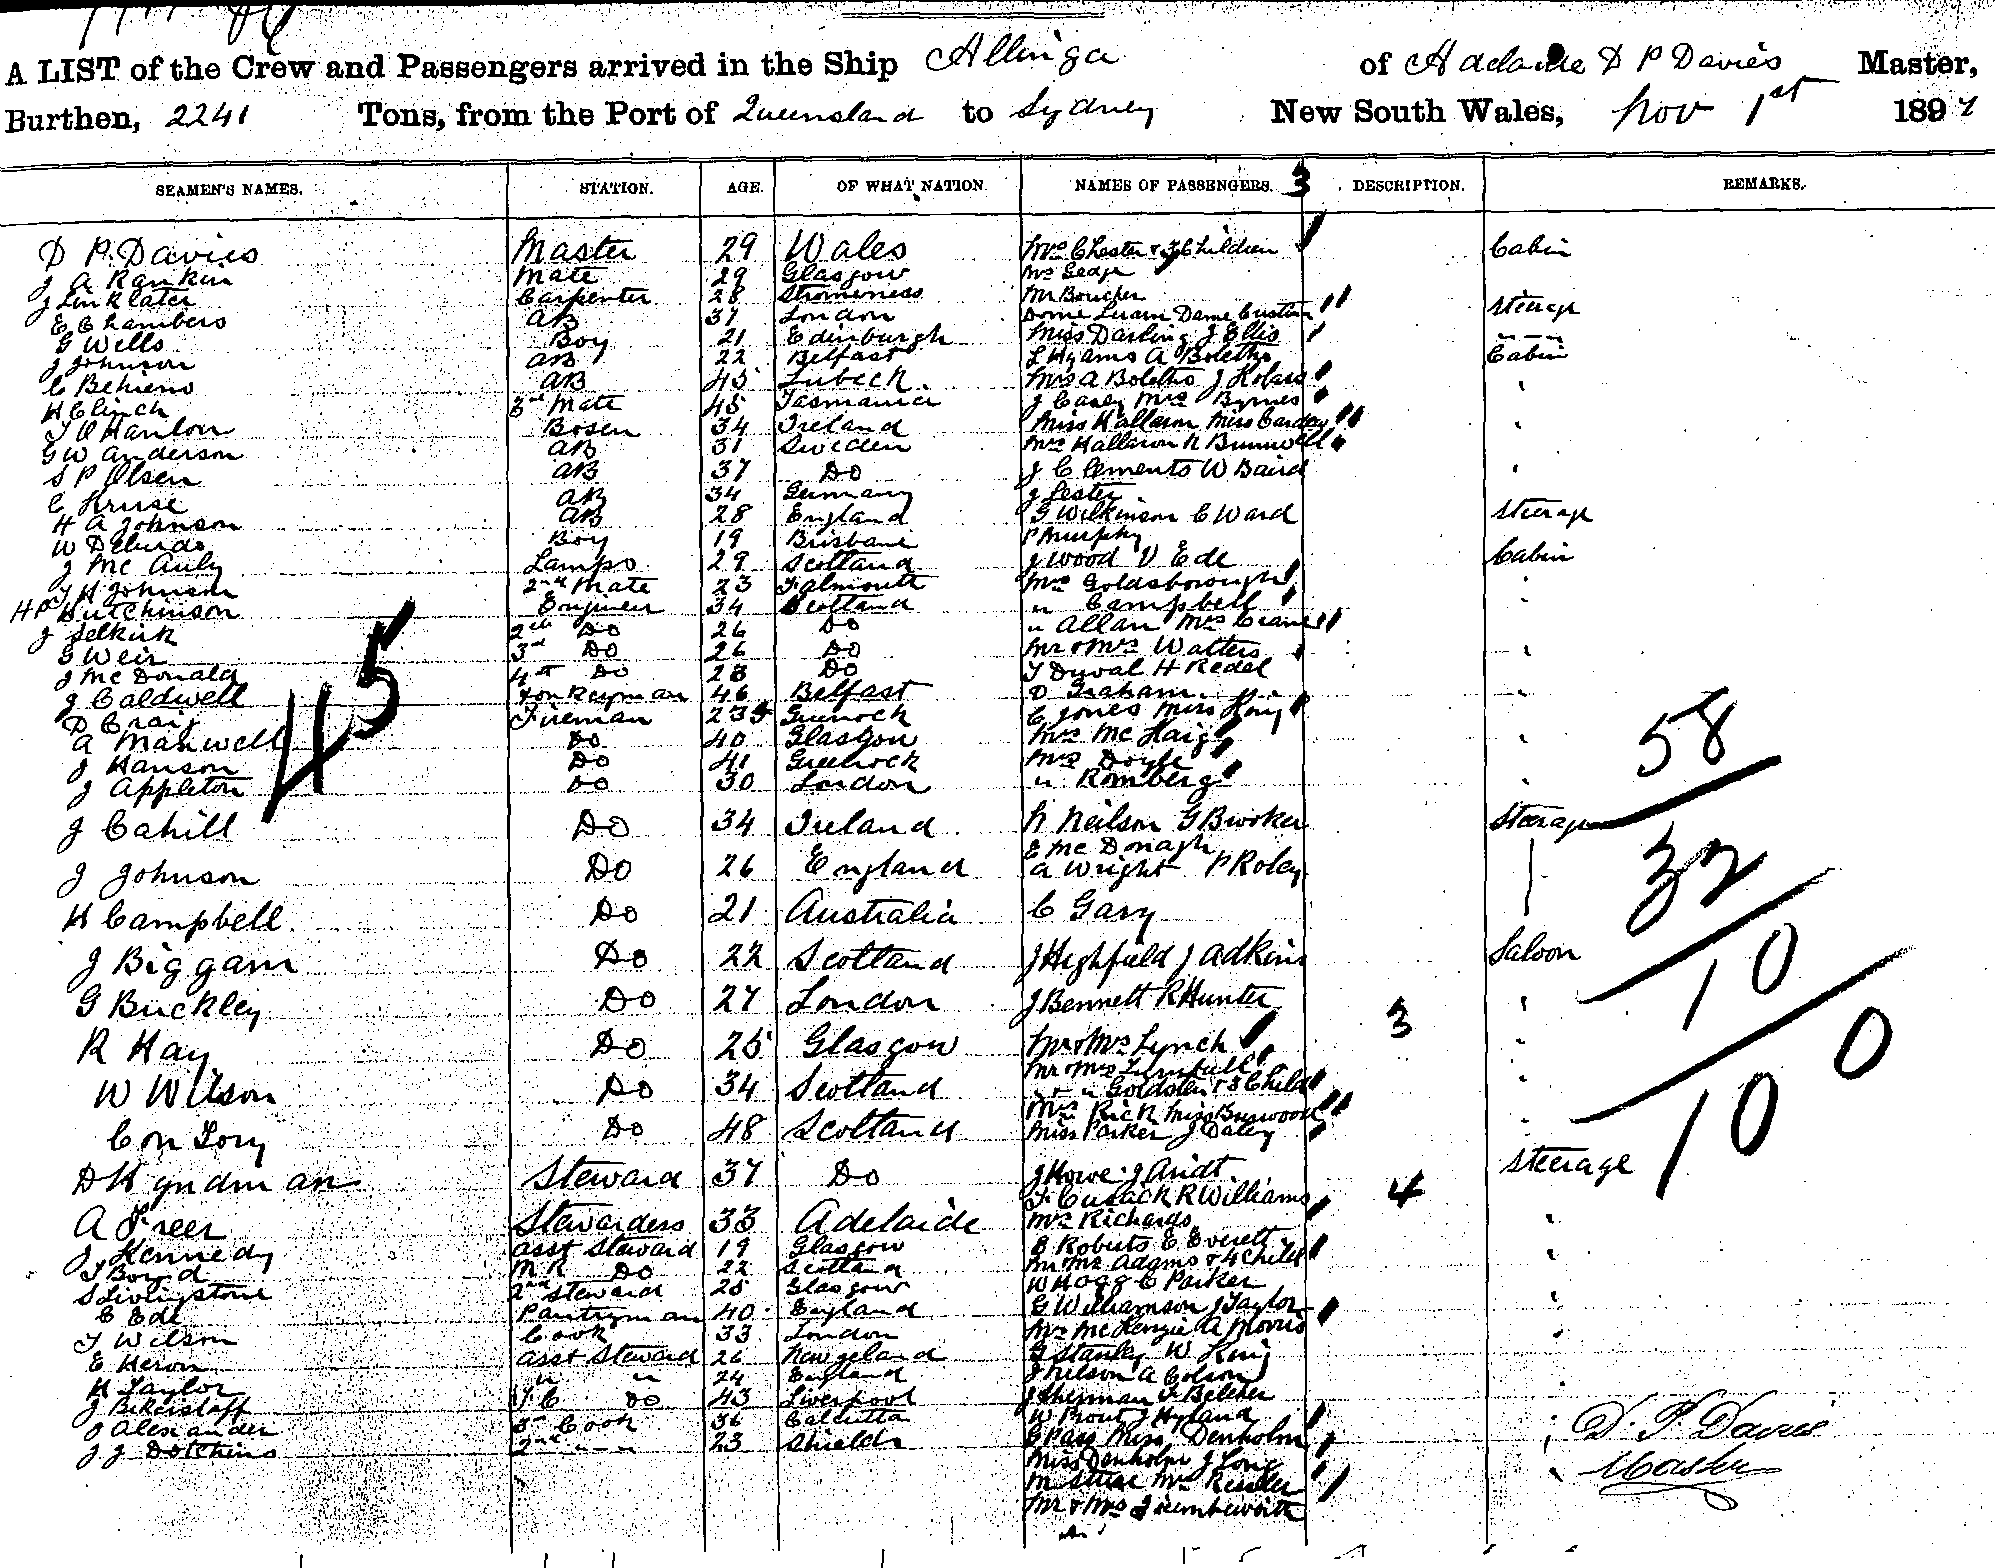 A LIST of the Crew and Passengers arrived in the Ship Allinga of Adelaide D P Davies Master,
Burthen, 2241 Tons, from the Port of Queensland to Sydney New South Wales, Nov 1st 1897
SEAMEN'S NAMES. STATION. AGE. OF WHAT NATION. NAMES OF PASSENGERS. 3 DESCRIPTION. REMARKS.
D P Davies Master 29 Wales Mrs Chester & Children Cabin
J A Rankin Mate 29 Glasgow
J Linklater Carpenter 28 Stromness Mr Boucher
E Chambers AB 37 London Steerage
G Wells Boy 21 Edinburgh Miss Darling J Ellis
J Johnson AB 22 Belfast L Hyams A Boletho Cabin
C Behrens AB 45 Lubeck Mrs A Boletho
H Clinch 3rd Mate 45 Tasmania J Casey Mrs Byrnes
T O Hanlon Bosen 34 Ireland Miss Hallaron Miss
G W Anderson AB 31 Sweden Mrs Hallaron
S P Olsen AB 37 Do J Clements W Baird
C Kruse AB 34 Germany J Lester
H A Johnson AB 28 England G Wilkinson C Ward Steerage
W Boy 19 Brisbane P Murphy
J Mc Auly Lamps 29 Scotland J Wood V Ede Cabin
J H Johnson 2nd Mate 23 Falmouth Mrs Goldsborough
H P Hutchinson Engineer 34 Scotland " Campbell
J Selkirk 2nd Do 26 Do " Allan Mrs
G Weir 3rd Do 26 Do Mr & Mrs Watters
J Mc Donald 4th Do 28 Do T Duval H Redel
J Caldwell Donkeyman 46 Belfast D Graham
D Craig Fireman 23 Greenock C Jones Miss King
A Maxwell Do 40 Glasgow Mrs Mc Haig
J Hanson Do 41 Greenock Mrs Doyle
J Appleton Do 30 London " Romberg
45
58
J Cahill Do 34 Ireland N Neilson G Brooker Steerage
E Mc Donagh
J Johnson Do 26 England A Wright P Roley
32
H Campbell Do 21 Australia C Gary
J Biggam Do 22 Scotland J Highfield J Adkins Saloon
10
G Buckley Do 27 London J Bennett R Hunter
3
R Hay Do 25 Glasgow Mr & Mrs Lynch
0
W Wilson Do 34 Scotland " & " Goldstein & 3 Child
Mrs Rich Miss Burwood
Con Lory Do 48 Scotland Miss Parker J Daley
10
D Hyndman Steward 37 Do J Howe J Aridt Steerage
4
T Cusack R Williams
A Freer Stewardess 33 Adelaide Mrs Richards
J Kennedy Asst Steward 19 Glasgow B Roberts E Everett
T Boyd M R Do 22 Scotland Mr Mrs Adams & 4 Child
S Livingstone 2nd Steward 25 Glasgow W Hogg C Parker
E Ede Pantryman 40 England G Williamson J Taylor
T Wilson Cook 33 London Mrs McKenzie A Morris
E Heron Asst Steward 26 New Zeland G Stanley W King
H Taylor " " 24 England J Nelson A Colson
J Bikerstaff Do 43 Liverpool J Sherman F Belcher
J Alexander 3rd Cook 36 Calcutta W Prout J Hyland
J J Dotchins 2nd " " 23 Shields G Pass Miss Denholm
Miss Denholm J Long
Mr & Mrs
D. P Davies
Master